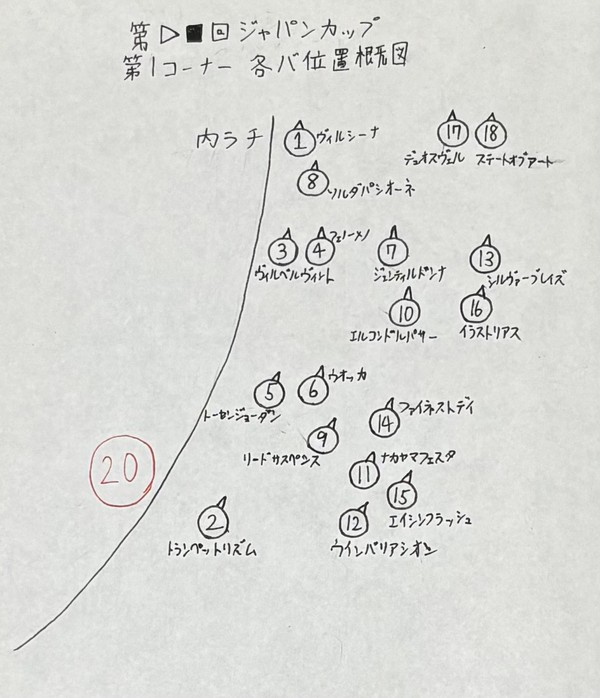 第▷■回ジャパンカップ
第1コーナー 各バ位置概図
内ラチ
1 ヴィルシーナ
17 デュオスヴェル
18 ステートオブアート
8 ソルダパシオーネ
3 ヴィルベルヴィント
4 フェノーメノ
7 ジェンティルドンナ
13 シルヴァーブレイズ
10 エルコンドルパサー
16 イラストリアス
5 トーセンジョーダン
6 ウオッカ
14 ファイネストデイ
9 リードサスペンス
11 ナカヤマフェスタ
15 エイシンフラッシュ
20
2 トランペットリズム
12 ウインバリアシオン